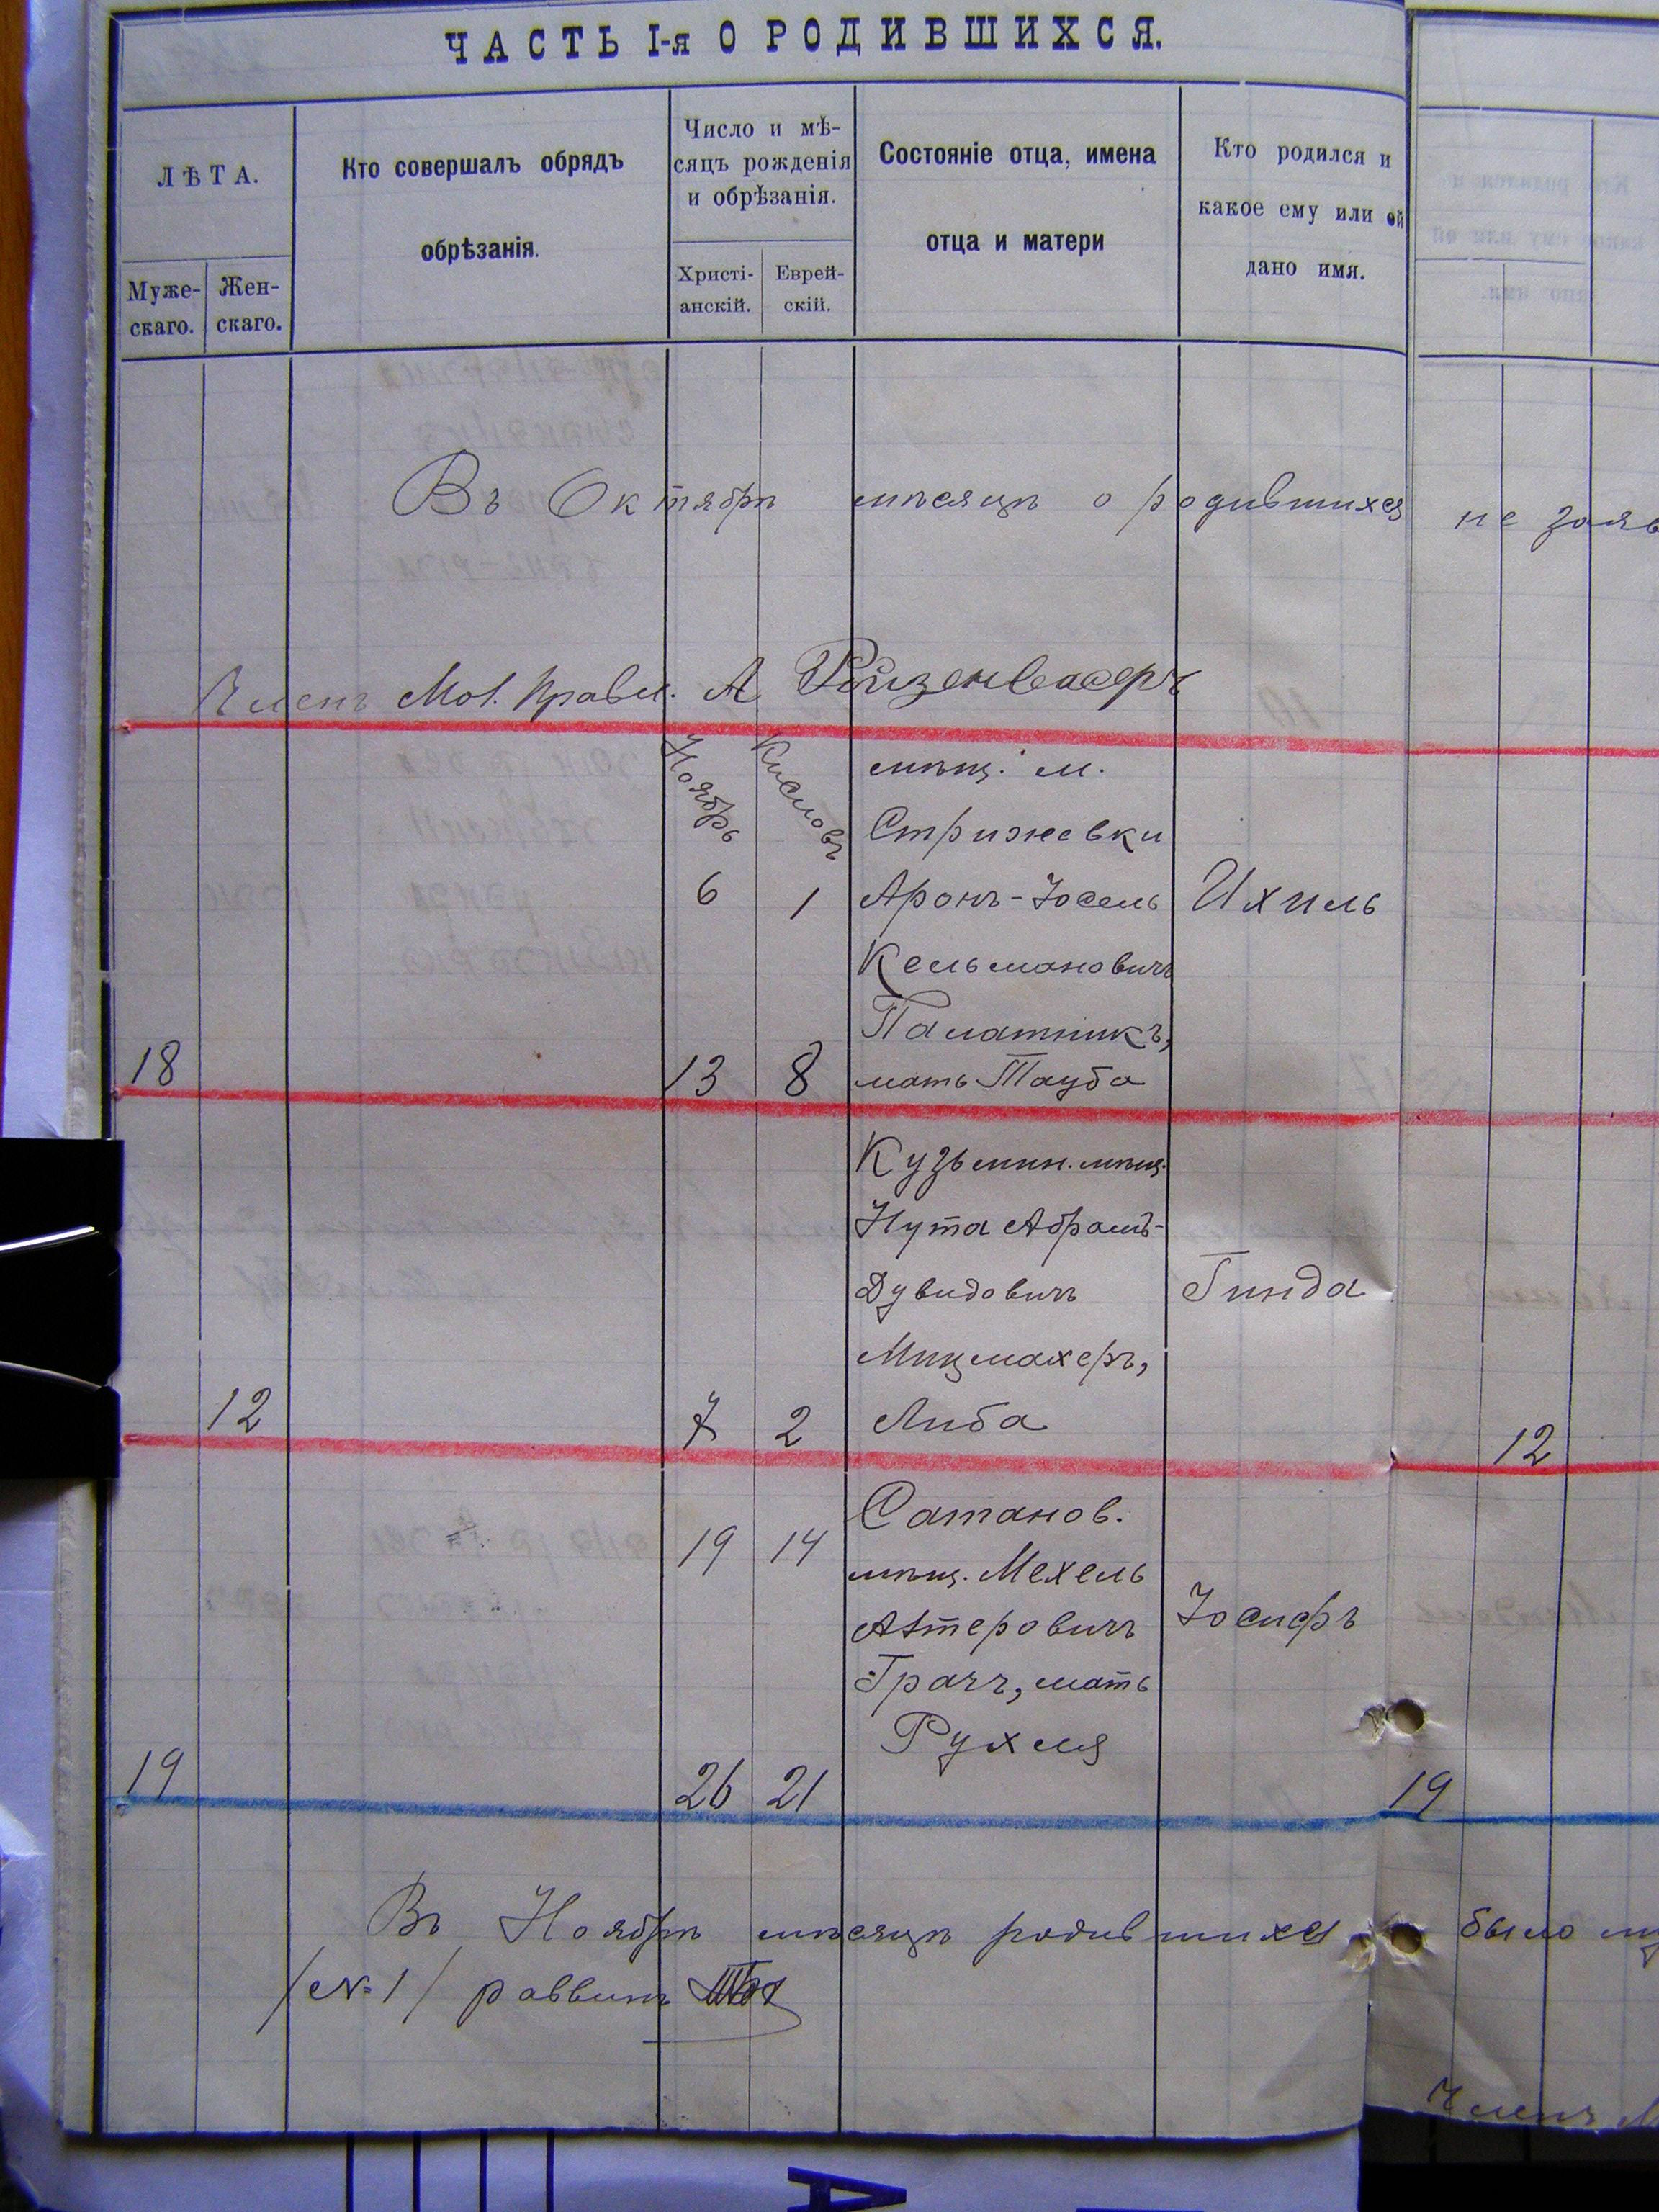 ЧАСТЬ I-я О РОДИВШИХСЯ.
ЛѢТА.
Муже-
скаго.
Жен-
скаго.
Кто совершалъ обрядъ
обрѣзанія.
Число и мѣ-
сяцъ рожденія
и обрѣзанія.
Христі-
анскій.
Еврей-
скій.
Состояніе отца, имена
отца и матери
Кто родился и
какое ему или ей
дано имя.
Въ Октябрѣ мѣсяцѣ о родившихся не заяв
Членъ Мол. Правл. А Ройзенвасеръ
Ноябрь
Кислов
мѣщ. м.
Стрижевки
6 1 Аронъ-Іосель Ихиль
Кельмановичъ
Палатникъ,
18 13 8 мать Тауба
Кузьмин. мѣщ.
Нута Абрамъ-
Дувидовичъ Гинда
Мицмахеръ,
12 7 2 Либа 12
Сатанов.
19 14
мѣщ. Мехель
Іосифъ
Грачъ, мать
Рухля
19 26 21 19
Въ Ноябрѣ мѣсяцѣ родившихся было
/№ 1/ раввинъ
Членъ М